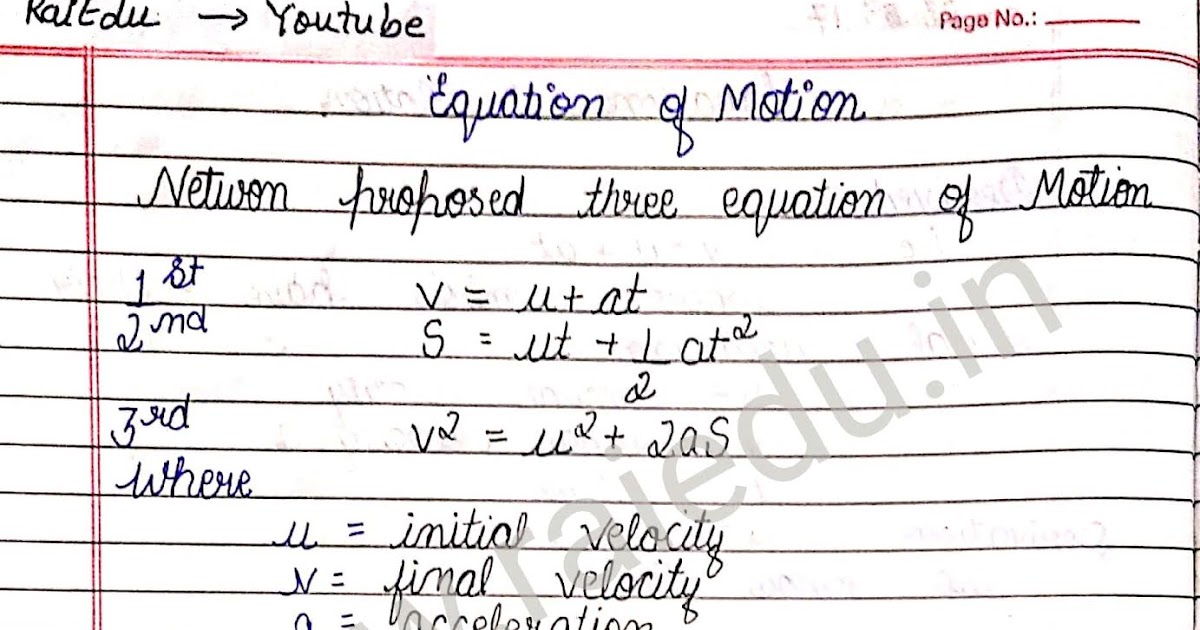 RaiEdu → Youtube
Page No.:
Equation of Motion
Netwon proposed three equation of Motion
1st v = u + at
2nd S = ut + 1/2 at²
3rd v² = u² + 2aS
where
u = initial velocity
v = final velocity
a = acceleration
raiedu.in